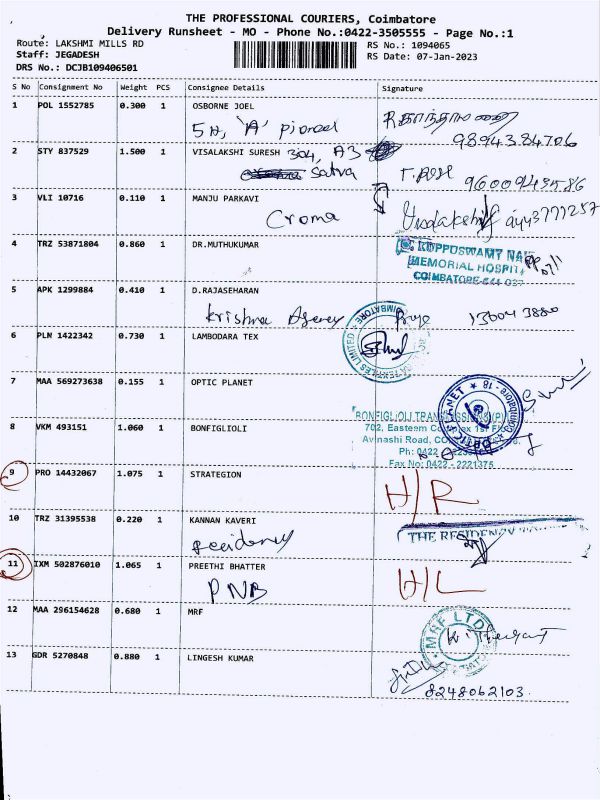 THE PROFESSIONAL COURIERS, Coimbatore
Delivery Runsheet - MO - Phone No.:0422-3505555 - Page No.:1
Route: LAKSHMI MILLS RD
RS No.: 1094065
Staff: JEGADESH
RS Date: 07-Jan-2023
DRS No.: DCJB109406501
S No Consignment No Weight PCS Consignee Details Signature
1 POL 1552785 0.300 1 OSBORNE JOEL
5H, 'A' pioneel
9894384706
2 STY 837529 1.500 1 VISALAKSHI SURESH 304, A3
Satva
9600943586
3 VLI 10716 0.110 1 MANJU PARKAVI
Croma
4 TRZ 53871804 0.860 1 DR.MUTHUKUMAR
KUPPUSWAMY
MEMORIAL HOSPITA
COIMBATORE-641 037
5 APK 1299884 0.410 1 D.RAJASEHARAN
Krishna Agency
6 PLN 1422342 0.730 1 LAMBODARA TEX
TEXTILES LIMITED COIMBATORE
7 MAA 569273638 0.155 1 OPTIC PLANET
OPTIC PLANET Coimbatore - 18
8 VKM 493151 1.060 1 BONFIGLIOLI
BONFIGLIOLI
702, Eastern
Avinashi Road,
Ph: 0422
Fax No: 0422 - 2221375
9 PRO 14432067 1.075 1 STRATEGION
H/R
10 TRZ 31395538 0.220 1 KANNAN KAVERI
Residency
THE RESIDENCY
11 IXM 502876010 1.065 1 PREETHI BHATTER
PNB
H/L
12 MAA 296154628 0.680 1 MRF
MRF LTD
13 GDR 5270848 0.880 1 LINGESH KUMAR
8248062103